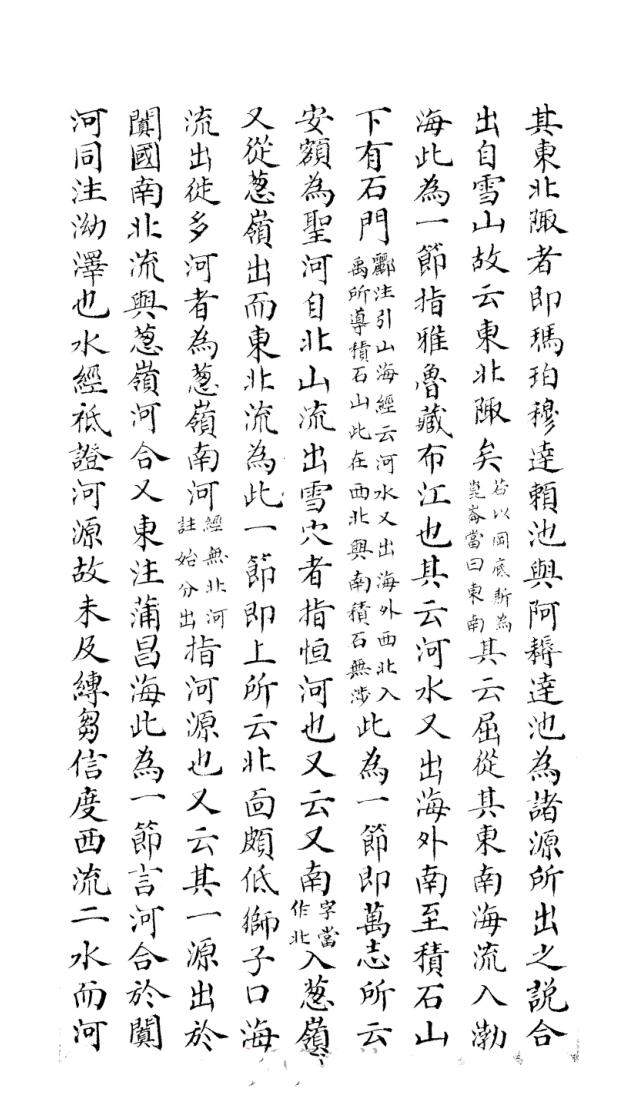 其東北陬者即瑪珀穆達賴池與阿耨達池為諸源所出之說合
出自雪山故云東北陬矣若以岡底斯為崑崙當曰東南其云屈從其東南海流入渤
海此為一節指雅魯藏布江也其云河水又出海外南至積石山
下有石門酈注引山海經云河水又出海外西北入禹所導積石山此在西北與南積石無涉此為一節即萬志所云
安額為聖河自北山流出雪穴者指恒河也又云又南字當作北入蔥嶺
又從蔥嶺出而東北流為此一節即上所云北面頗低獅子口海
流出徙多河者為蔥嶺南河經無北河註始分出指河源也又云其一源出於
闐國南北流與蔥嶺河合又東注蒲昌海此為一節言河合於闐
河同注泑澤也水經祗證河源故未及縳芻信度西流二水而河